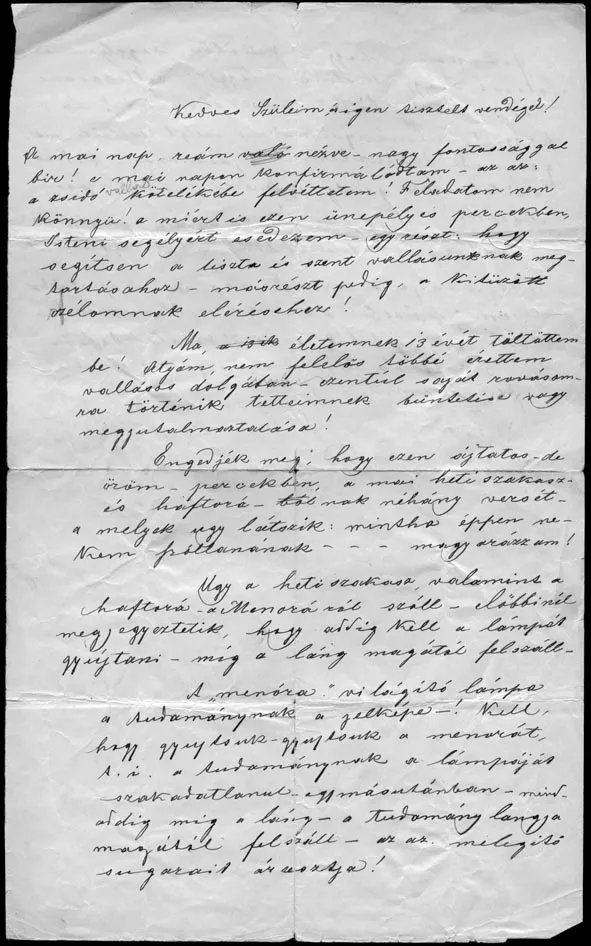 Kedves Szüleim, s igen tisztelt vendégek!
A mai nap, reám való nézve – nagy fontossággal
bir! e mai napon konfirmálódtam – az az:
a zsidó vallás kötelékébe felvéttetem! Feladatom nem
könnyü! a miért is ezen ünepélyes percekben,
Isteni segélyért esedezem – egyrészt: hogy
segitsen a tiszta és szent vallásunknak meg-
tartásához – másrészt pedig, a kitüzött
célomnak eléréséhez!
Ma, a is ik életemnek 13 évét töltöttem
be! Atyám, nem felelős többé érettem
vallásos dolgában – ezentúl saját rovásom-
ra történik tetteimnek büntetése vagy
megjutalmaztatása!
Engedjék meg, hogy ezen ájtatos – de
öröm – percekben, a mai heti szakasz –
és háftorá – ból nak néhány versét –
a melyek ugy látszik: mintha éppen ne-
kem szóllanának – – – magyarázzam!
Ugy a heti szakasz, valamint a
háftorá – a Menoráról száll – előbbinél
megjegyeztetik, hogy addig kell a lámpát
gyujtani – mig a láng magától felszáll –
A „menóra" világitó lámpa
a tudománynak a jelképe –! Kell,
hogy gyujtsuk – gyujtsuk a menorát,
t. i. a tudománynak a lámpáját
szakadatlanul – egymásutánban – mind-
addig mig a láng – a tudomány langja
magától felszáll – az az. melegitő
sugarait árasztja!